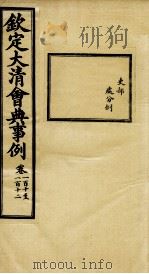 欽定大清會典事例
卷一百十至
一百十二
吏部
處分例